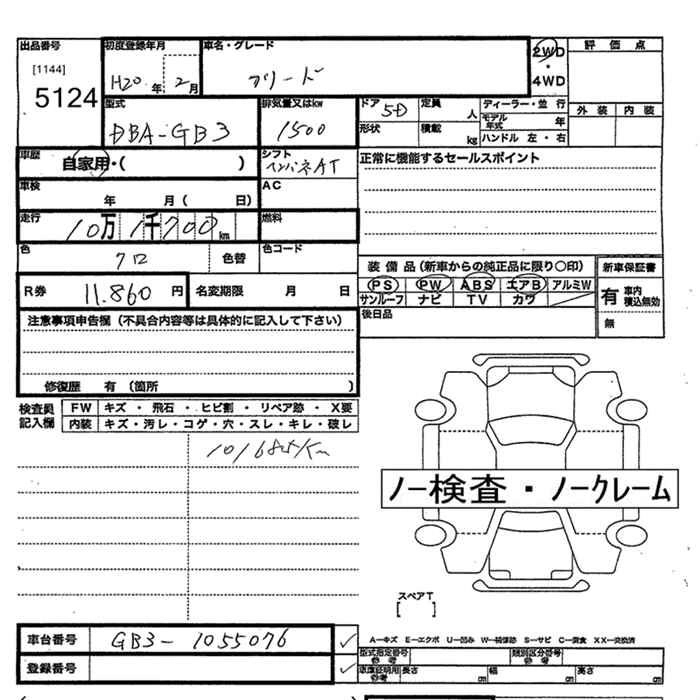 出品番号 初度登録年月 車名・グレード 2WD・4WD 評価点
[1144]
5124
H20年 2月 フリード
外装 内装
型式 排気量又はkw ドア 5D 定員 人 ディーラー・並行
DBA-GB3 1500 形状 積載 kg モデル年式 年
ハンドル 左・右
車歴 自家用・( ) シフト AT 正常に機能するセールスポイント
車検 年 月( 日) AC
走行 10万1千700km 燃料
色 クロ 色替 色コード
装備品(新車からの純正品に限り〇印) 新車保証書
PS PW ABS エアB アルミW 有 車内積込無効
サンルーフ ナビ TV カワ
R券 11.860円 名変期限 月 日
後日品 無
注意事項申告欄(不具合内容等は具体的に記入して下さい)
修復歴 有(箇所 )
検査員記入欄 FW キズ・飛石・ヒビ割・リペア跡・X要
内装 キズ・汚レ・コゲ・穴・スレ・キレ・破レ
ノー検査・ノークレーム
スペアT
[ ]
車台番号 GB3-1055076
A-キズ E-エクボ U-凹み W-補修跡 S-サビ C-腐食 XX-交換済
型式指定番号 参考 類別区分番号 参考
登録番号
車庫証明用 参考 長さ cm 幅 cm 高さ cm